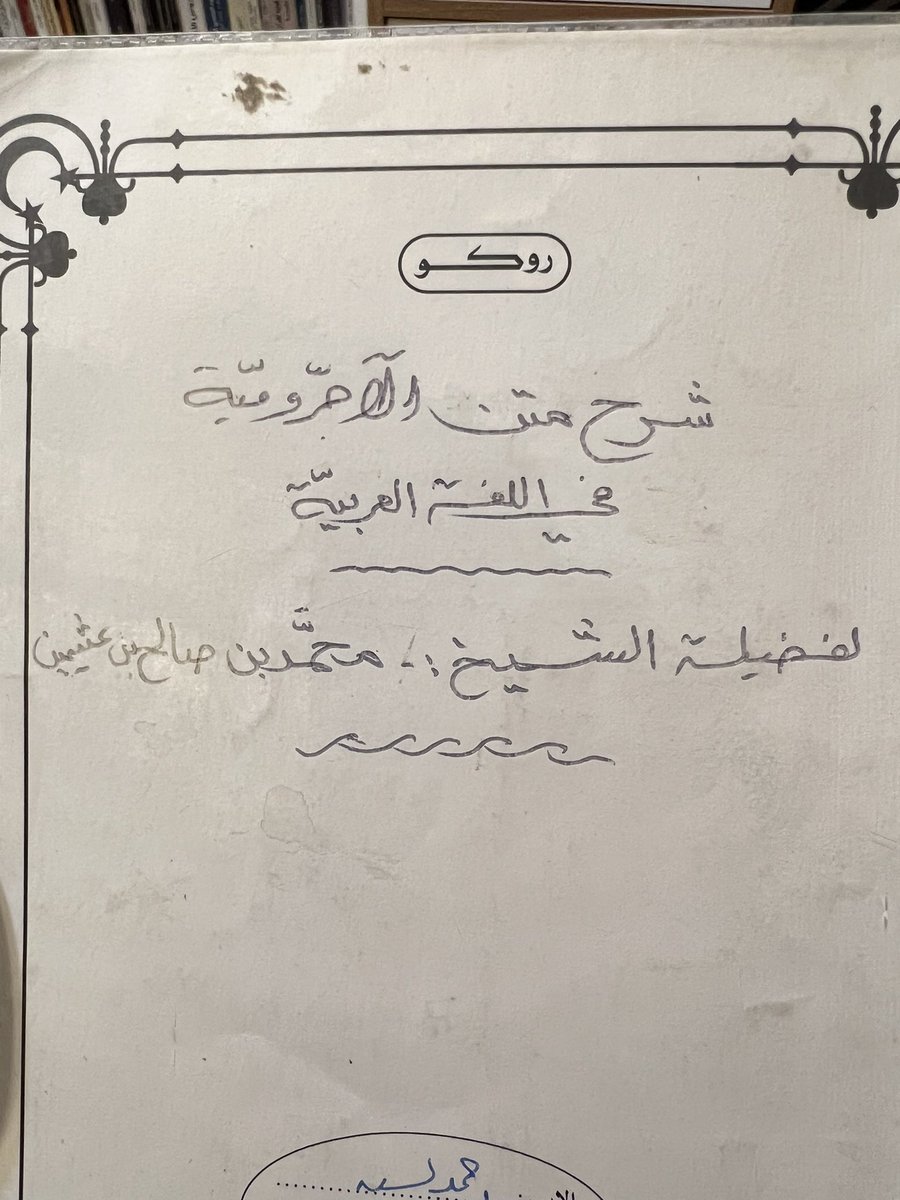 روكو
شرح متن الآجرّوميّة
في اللغة العربيّة
لفضيلة الشيخ :. محمَّد بن صالح بن عثيمين